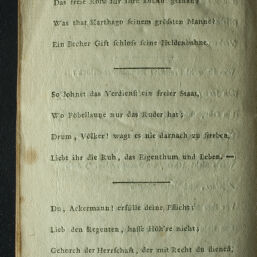 Das freie Rom für ihre
Was that Karthago seinem größten Manne?
Ein Becher Gift schloss seine Heldenbahne.
So lohnet das Verdienst ein freier Staat,
Wo Pöbellaune nur das Ruder hat;
Drum, Völker! wagt es nie darnach zu streben,
Liebt ihr die Ruh, das Eigenthum und Leben, —
Du, Ackermann! erfülle deine Pflicht:
Lieb den Regenten, hasse Höh're nicht;
Gehorch der Herrschaft, der mit Recht du dienest,